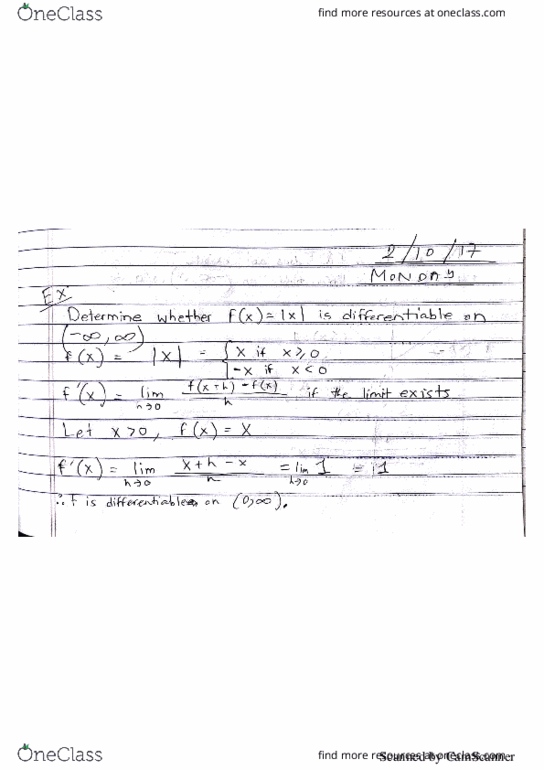 OneClass
find more resources at oneclass.com
2/10/17
MONDAY
EX
Determine whether f(x)=|x| is differentiable on
(-∞,∞)
f(x) = |x| = { x if x≥0
-x if x<0
f'(x) = lim h→0 f(x+h)-f(x) / h if the limit exists
Let x>0, f(x) = x
f'(x) = lim h→0 x+h-x / h = lim h→0 1 = 1
∴ f is differentiable on (0,∞).
OneClass
find more resources at oneclass.com
Scanned by CamScanner